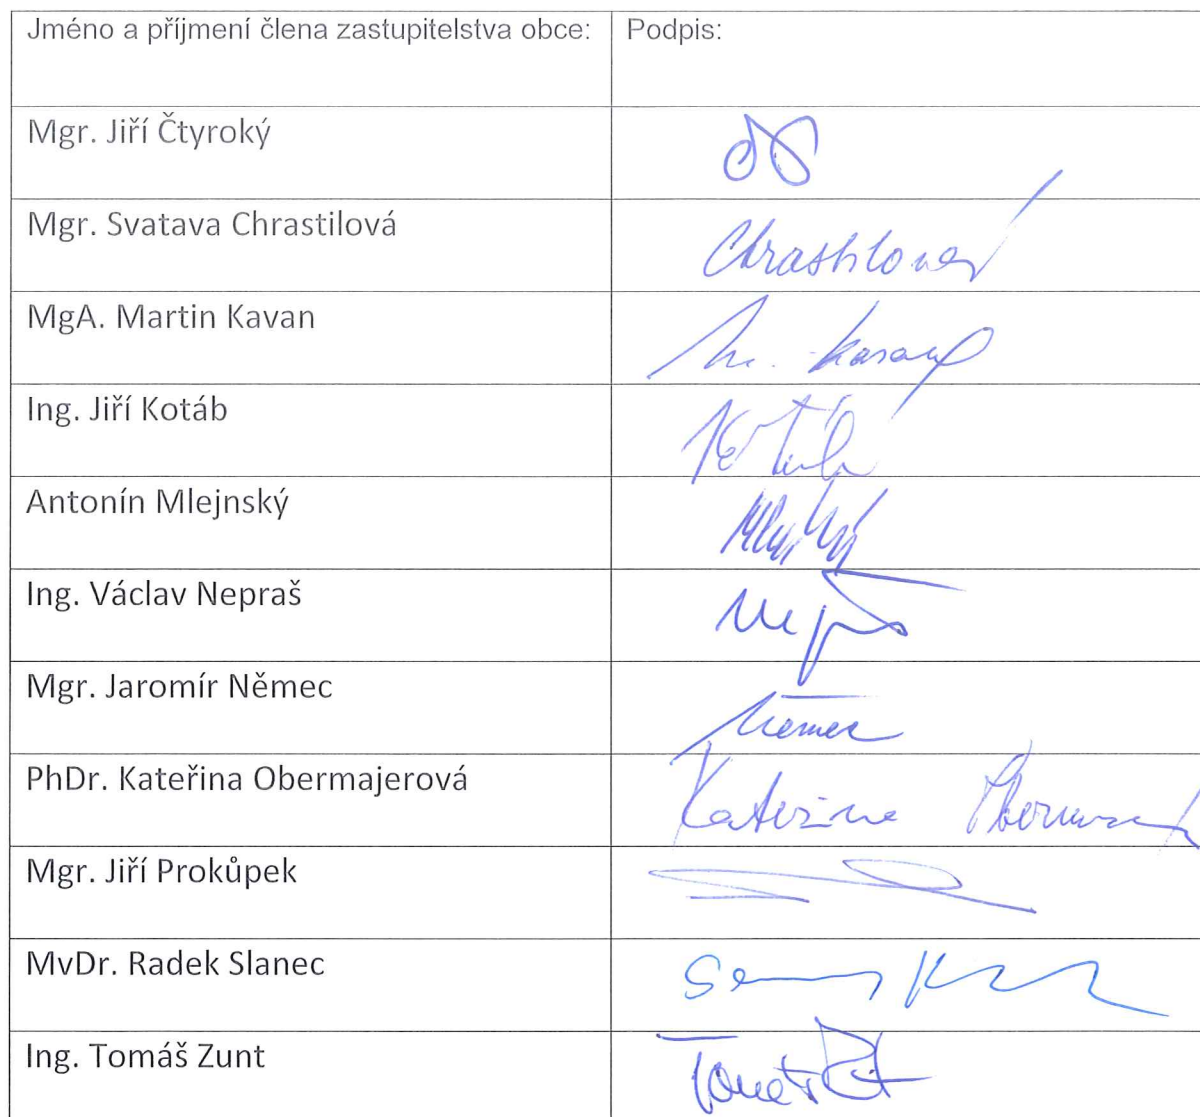 Jméno a příjmení člena zastupitelstva obce: Podpis:
Mgr. Jiří Čtyroký
Mgr. Svatava Chrastilová Chrastilová
MgA. Martin Kavan M. Kavan
Ing. Jiří Kotáb
Antonín Mlejnský
Ing. Václav Nepraš
Mgr. Jaromír Němec Němec
PhDr. Kateřina Obermajerová Kateřina
Mgr. Jiří Prokůpek
MvDr. Radek Slanec
Ing. Tomáš Zunt